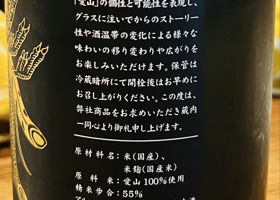 「愛山」の個性と可能性を表現し、
グラスに注いでからのストーリー
性や酒温帯の変化による様々な
味わいの移り変わりや広がりを
お楽しみいただけます。保管は
冷蔵暗所にて開栓後はお早めに
お召し上がりください。この度は、
弊社商品をお求めいただき蔵内
一同心より御礼申し上げます。
原材料名：米(国産)、
米麹(国産米)
原料米：愛山100%使用
精米歩合：55%